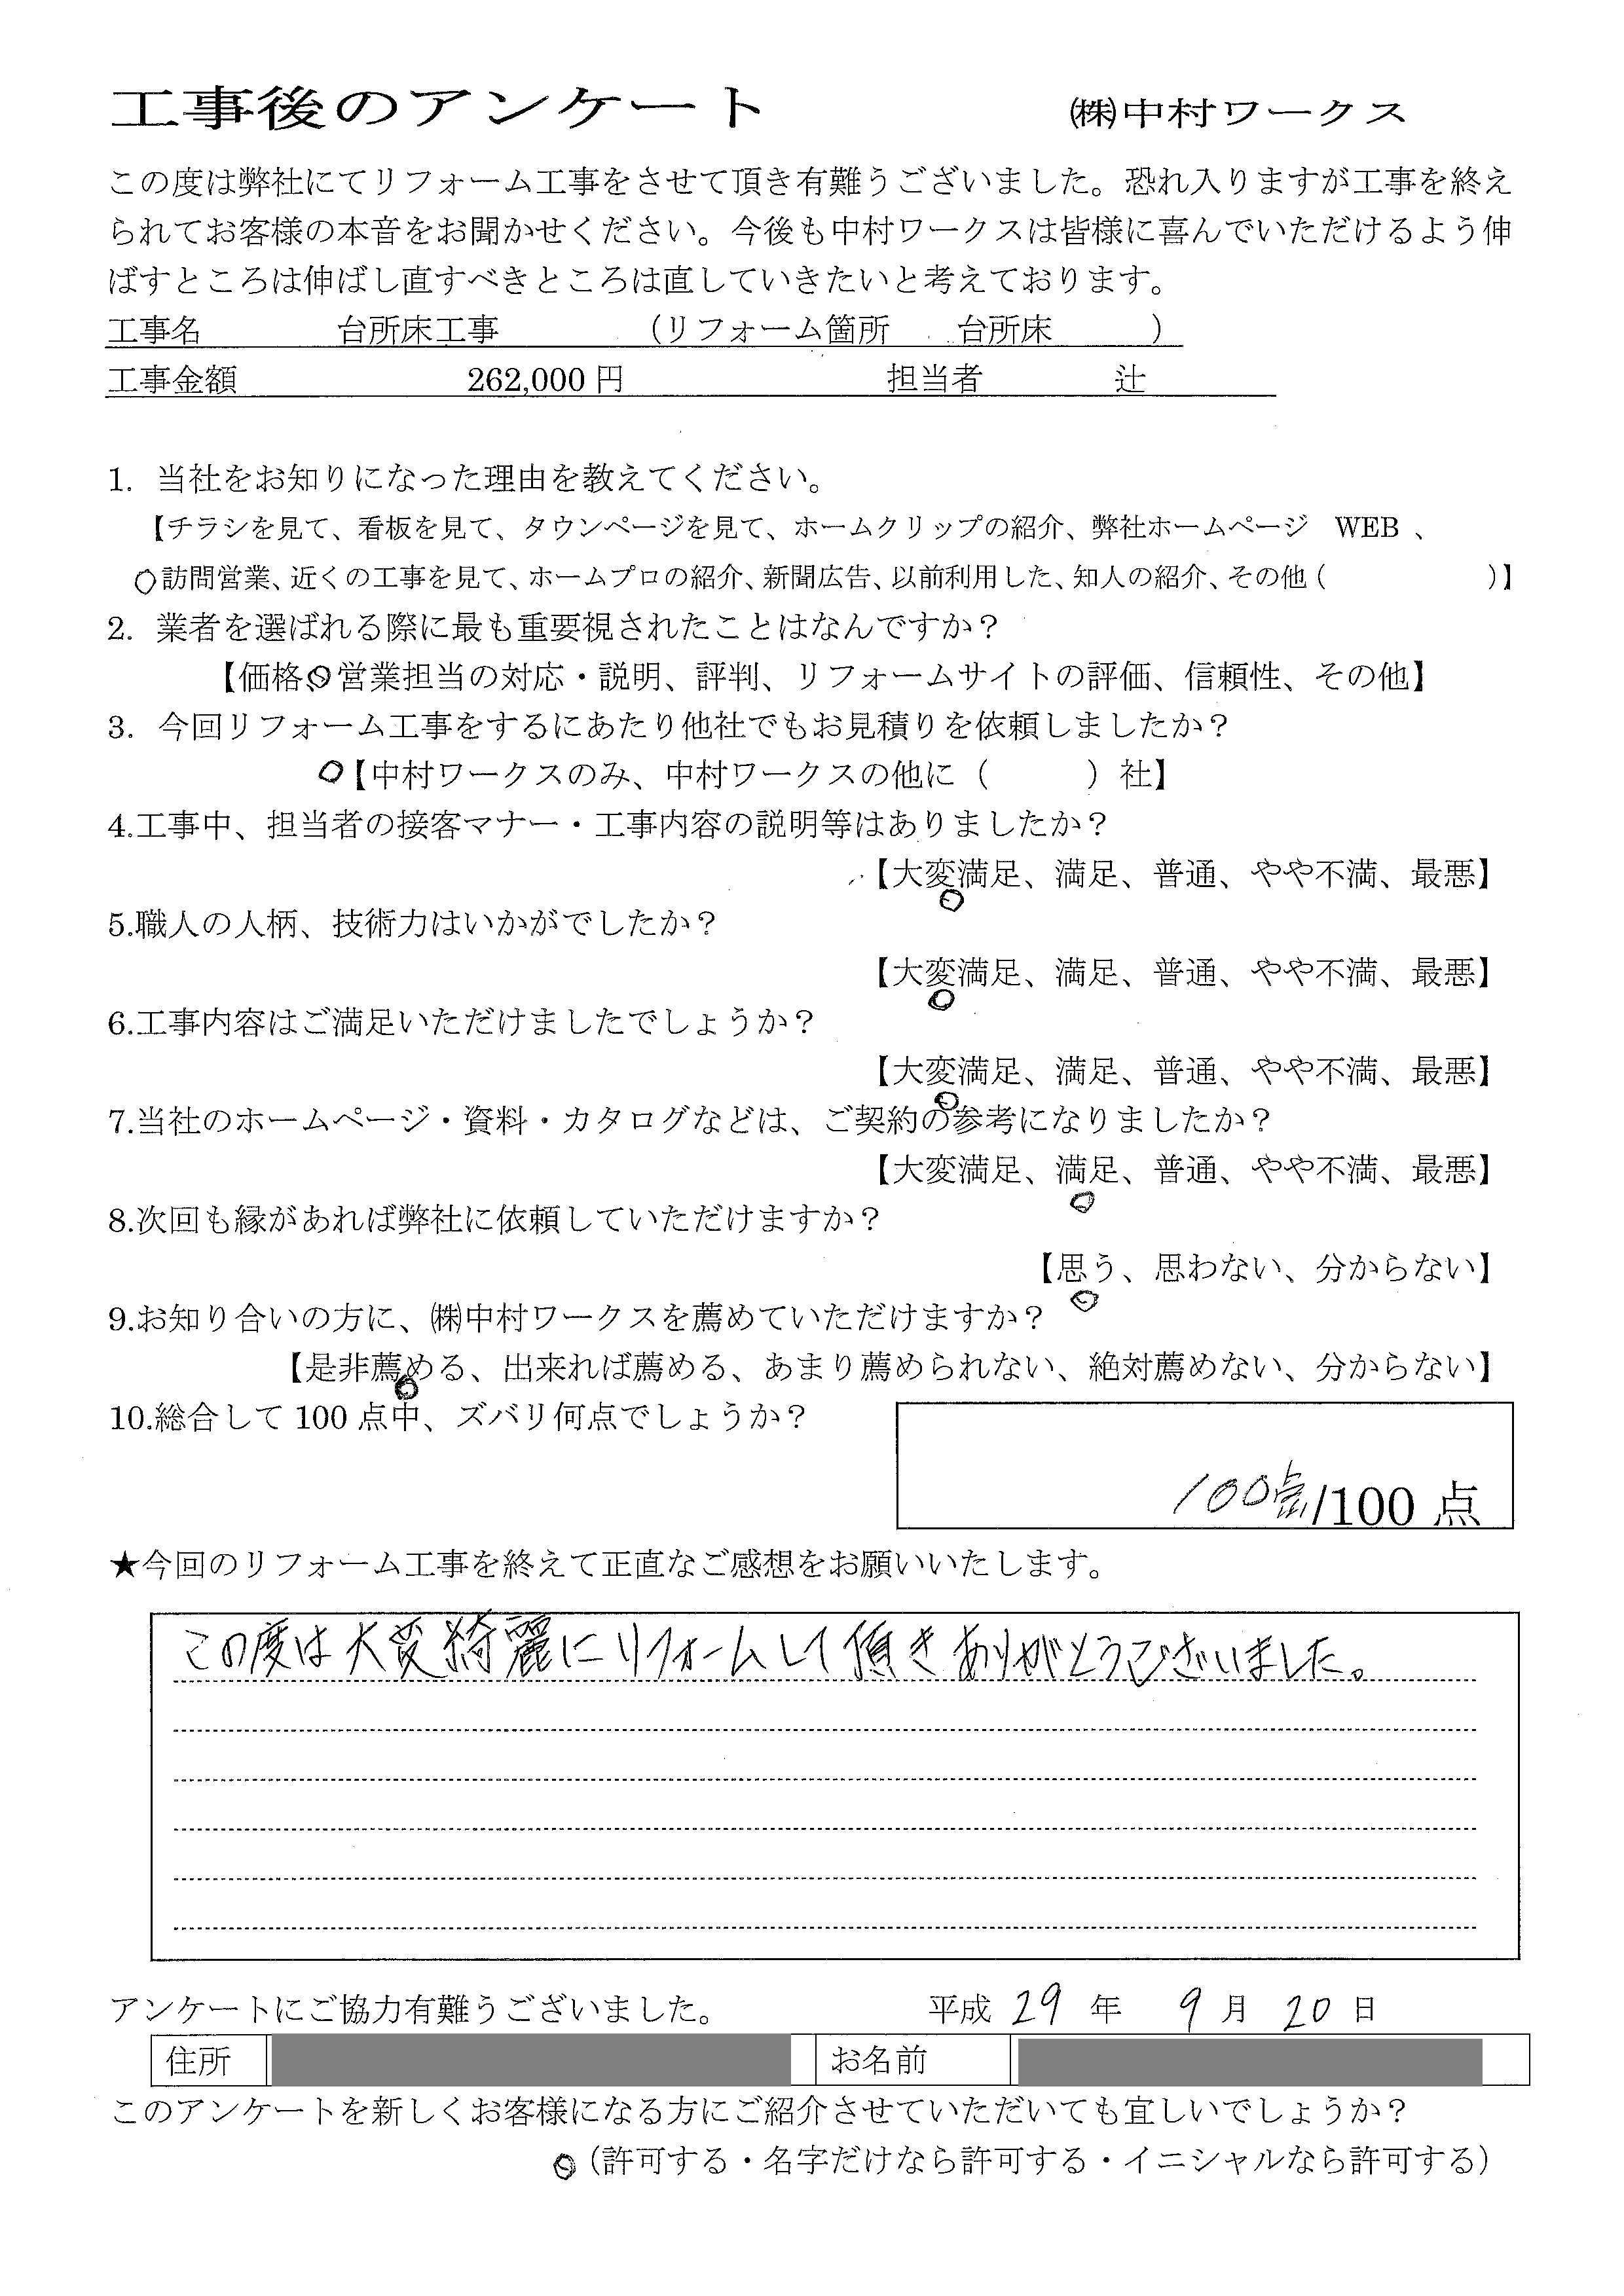 工事後のアンケート　㈱中村ワークス
この度は弊社にてリフォーム工事をさせて頂き有難うございました。恐れ入りますが工事を終え
られてお客様の本音をお聞かせください。今後も中村ワークスは皆様に喜んでいただけるよう伸
ばすところは伸ばし直すべきところは直していきたいと考えております。
工事名　台所床工事　（リフォーム箇所　台所床　）
工事金額　262,000 円　担当者　辻
1. 当社をお知りになった理由を教えてください。
【チラシを見て、看板を見て、タウンページを見て、ホームクリップの紹介、弊社ホームページ　WEB 、
訪問営業、近くの工事を見て、ホームプロの紹介、新聞広告、以前利用した、知人の紹介、その他（　　　）】
2. 業者を選ばれる際に最も重要視されたことはなんですか？
【価格、営業担当の対応・説明、評判、リフォームサイトの評価、信頼性、その他】
3. 今回リフォーム工事をするにあたり他社でもお見積りを依頼しましたか？
【中村ワークスのみ、中村ワークスの他に（　　　）社】
4.工事中、担当者の接客マナー・工事内容の説明等はありましたか？
【大変満足、満足、普通、やや不満、最悪】
5.職人の人柄、技術力はいかがでしたか？
【大変満足、満足、普通、やや不満、最悪】
6.工事内容はご満足いただけましたでしょうか？
【大変満足、満足、普通、やや不満、最悪】
7.当社のホームページ・資料・カタログなどは、ご契約の参考になりましたか？
【大変満足、満足、普通、やや不満、最悪】
8.次回も縁があれば弊社に依頼していただけますか？
【思う、思わない、分からない】
9.お知り合いの方に、㈱中村ワークスを薦めていただけますか？
【是非薦める、出来れば薦める、あまり薦められない、絶対薦めない、分からない】
10.総合して 100 点中、ズバリ何点でしょうか？
100点/100 点
★今回のリフォーム工事を終えて正直なご感想をお願いいたします。
この度は大変綺麗にリフォームして頂きありがとうございました。
アンケートにご協力有難うございました。　平成 29 年 9 月 20 日
住所　お名前
このアンケートを新しくお客様になる方にご紹介させていただいても宜しいでしょうか？
（許可する・名字だけなら許可する・イニシャルなら許可する）